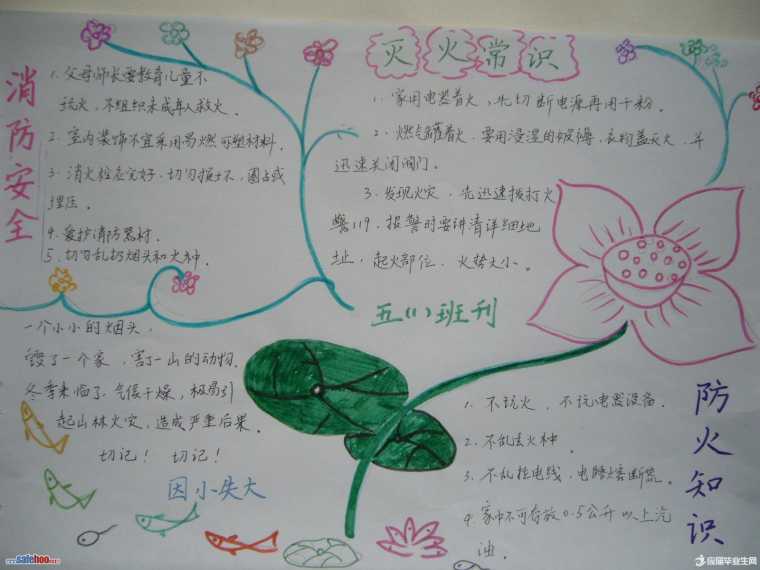 消防安全
1. 父母师长要教育儿童不
玩火，不组织未成年人救火。
2. 室内装饰不宜采用易燃可塑材料。
3. 消火栓应完好，切勿损坏、圈占或
埋压。
4. 爱护消防器材。
5. 切勿乱扔烟头和火种。
灭火常识
1. 家用电器着火，先切断电源再用干粉。
2. 燃气罐着火，要用浸湿的被褥，衣物盖灭火，并
迅速关闭阀门。
3. 发现火灾，先迅速拨打火
警119，报警时要讲清详细地
址，起火部位、火势大小。
五(1)班刊
一个小小的烟头，
毁了一个家，害了一山的动物。
冬季来临了，气候干燥，极易引
起山林火灾，造成严重后果。
切记！ 切记！
因小失大
防火知识
1. 不玩火，不玩电器设备。
2. 不乱丢火种。
3. 不乱接电线，电路熔断
4. 家中不可存放0.5公升以上汽
油。
www.safehoo.com
应届毕业生网